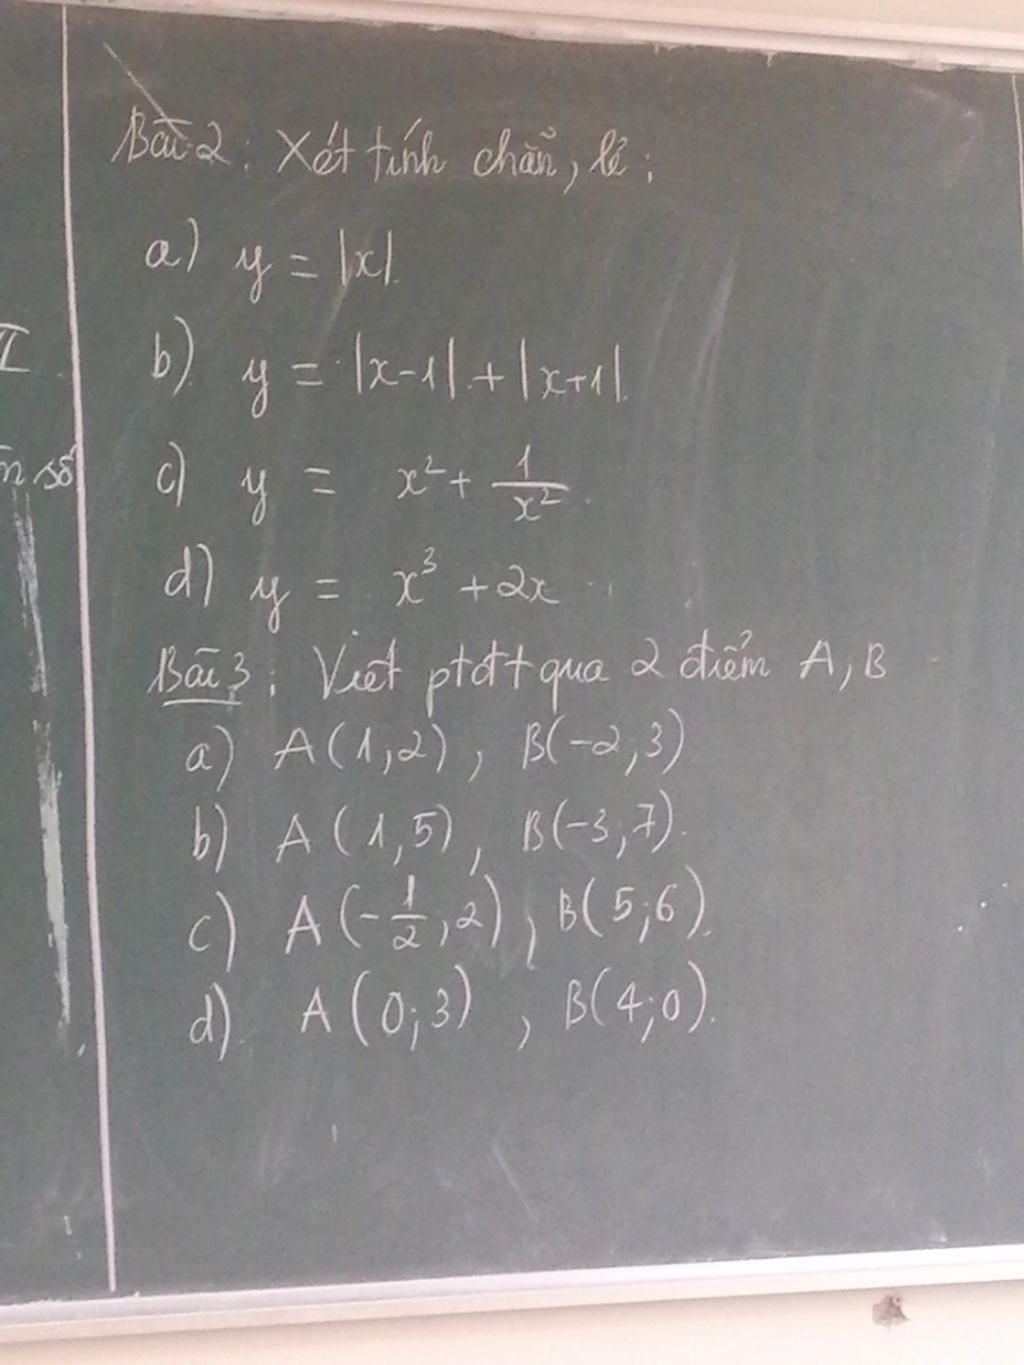 I
số
Bài 2: Xét tính chẵn, lẻ:
a) y = |x|.
b) y = |x-1| + |x+1|.
c) y = x² + 1/x².
d) y = x³ + 2x.
Bài 3: Viết ptđt qua 2 điểm A, B
a) A(1,2), B(-2,3)
b) A(1,5), B(-3,7).
c) A(-1/2,2), B(5;6).
d) A(0;3), B(4;0).